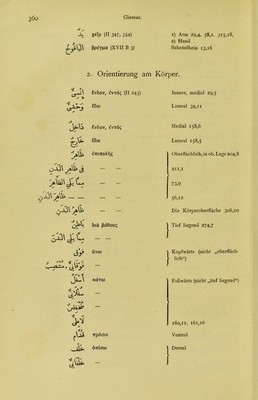 360 Glossar.
يَدٌ χείρ (II 347, 354) 1) Arm 29,4. 38,1. 315,18,
2) Hand
اليَافُوخُ βρέγμα (XVII B 3) Scheitelbein 13,16
2. Orientierung am Körper.
إِنْسِىٌّ ἔνδον, ἐντός (II 243) Innere, medial 29,5
وَحْشِىٌّ ἔξω Lateral 39,11
دَاخِلٌ ἔνδον, ἐντός Medial 158,6
خَارِجٌ ἔξω Lateral 158,5
ظَاهِرٌ ἐπιπολῆς Oberflächlich, in ob. Lage 204,8
فى ظَاهِرِ البَدَنِ — 211,1
مِمَّا يَلِى الظَّاهِرَ — — 73,9
— — ظَاهِرَ البَدَنِ — — 56,12
ظَاهِرُ البَدَنِ Die Körperoberfläche 306,10
بَاطِنٌ διὰ βάθους Tief liegend 274,7
مِمَّا يَلِى البَدَنَ — —
فَوْقَ ἄνω Kopfwärts (nicht „oberfläch-
lich“)
فَوْقَانِىٌّ، مُنْتَصِبٌ — —
أَسْفَلُ κάτω Fußwärts (nicht „tief liegend“)
سُفْلَانِىٌّ —
مُنْخَفِضٌ —
لَاطِئٌ 160,12. 161,16
قُدَّامُ πρόσω Ventral
خَلْفَ ὀπίσω Dorsal
خَلْفَانِىٌّ —